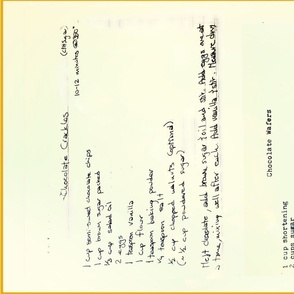 Chocolate Crackles
10-12 minutes @350°
1 cup semi-sweet chocolate chips
1 cup brown sugar packed
1/3 cup salad oil
2 eggs
1 teaspoon vanilla
1 cup flour
1 teaspoon baking powder
1/4 teaspoon salt
1/2 cup chopped walnuts (optional)
(~ 1/2 cup powdered sugar)
Melt chocolate add brown sugar & oil and stir. Add eggs one at
a time, mixing well after each. Add vanilla & stir. Measure dry
Chocolate Wafers
1 cup shortening
2 cups sugar